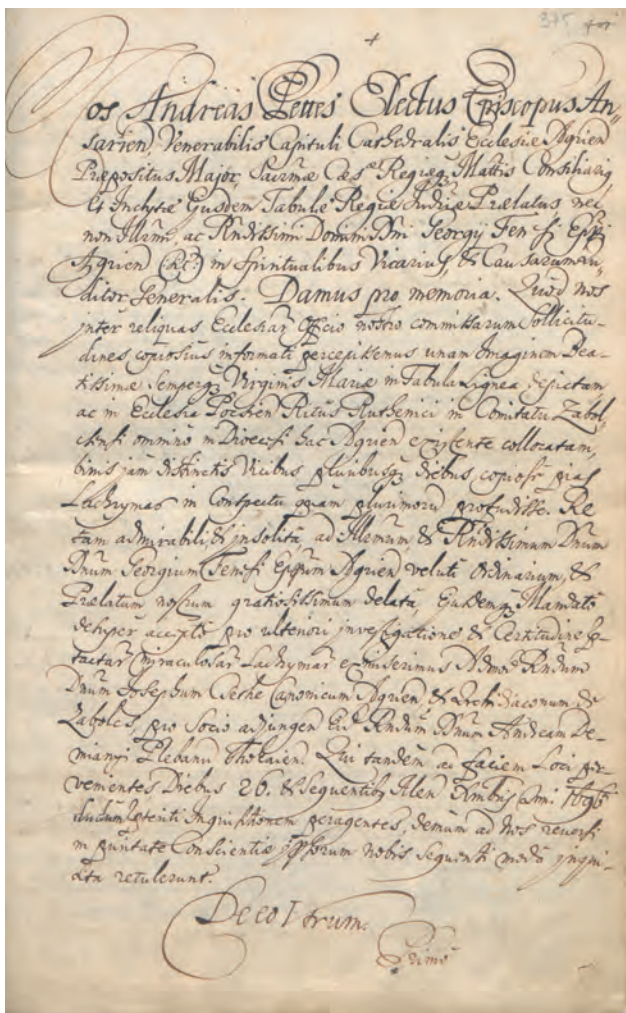 375
+
Nos Andreas Pettes Electus Episcopus An„
sarien, Venerabilis Capituli Cathedralis Ecclesiæ Agrien
Præpositus Major, Sacrmæ Cæs Regieq Mattis Consiliariq,
Et Inclytæ Eiusdem Tabulæ Regiæ Prælatus nec
non Illrmi, ac Rndissimi Domini Dni Georgij Fenesi Eppi
Agrien in Spiritualibus Vicariuq, & Causarum Au„
ditor Generalis. Damus pro memoria. Quod nos
inter reliquas Ecclesiar officio nostro commissarum Sollicitu-
dines copiosius informati percepissemus unam Imaginem Bea-
tissimæ Semperq Virginis Mariæ in Tabula Lignea depictam
ac in Ecclesia Pocsien Ritus Ruthenici in Comitatu Zabol„
chensi omnino in Diœcesi hac Agrien existente collocatam,
binis jam distinctis Vicibus pluribusq diebus, copiose pias
Lachrymas in Conspectu quam plurimoru profudisse. Re
tam admirabili, & insolita, ad Illrmum, & Rndissimum Dnum
Dnum Georgium Fenesi Eppum Agrien veluti Ordinarium, &
Prælatum nostrum gratiosissimum delata, Eiusdemq Mandato
desuper accepto pro ulteriori investigatione & Certitudine p-
tactar Miraculosar Lachrymar exmiserimus Admo Rndum
Dnum Josephum Csethe Canonicum Agrien, & Archidiaconum de
Zabolcs, pro Socio adjungen Eid Rndum Dnum Andream De-
mianyi Plebanu Thokaien. Qui tandem ad faciem Loci per-
venientes Diebus 26. & Sequentibq Xbris Anni 1696
Inquisitionem peragentes, demum ad Nos reversi
in puritate Conscientiæ ipsorum nobis Sequenti modo
retulerunt.
De eo Utrum:
Primo